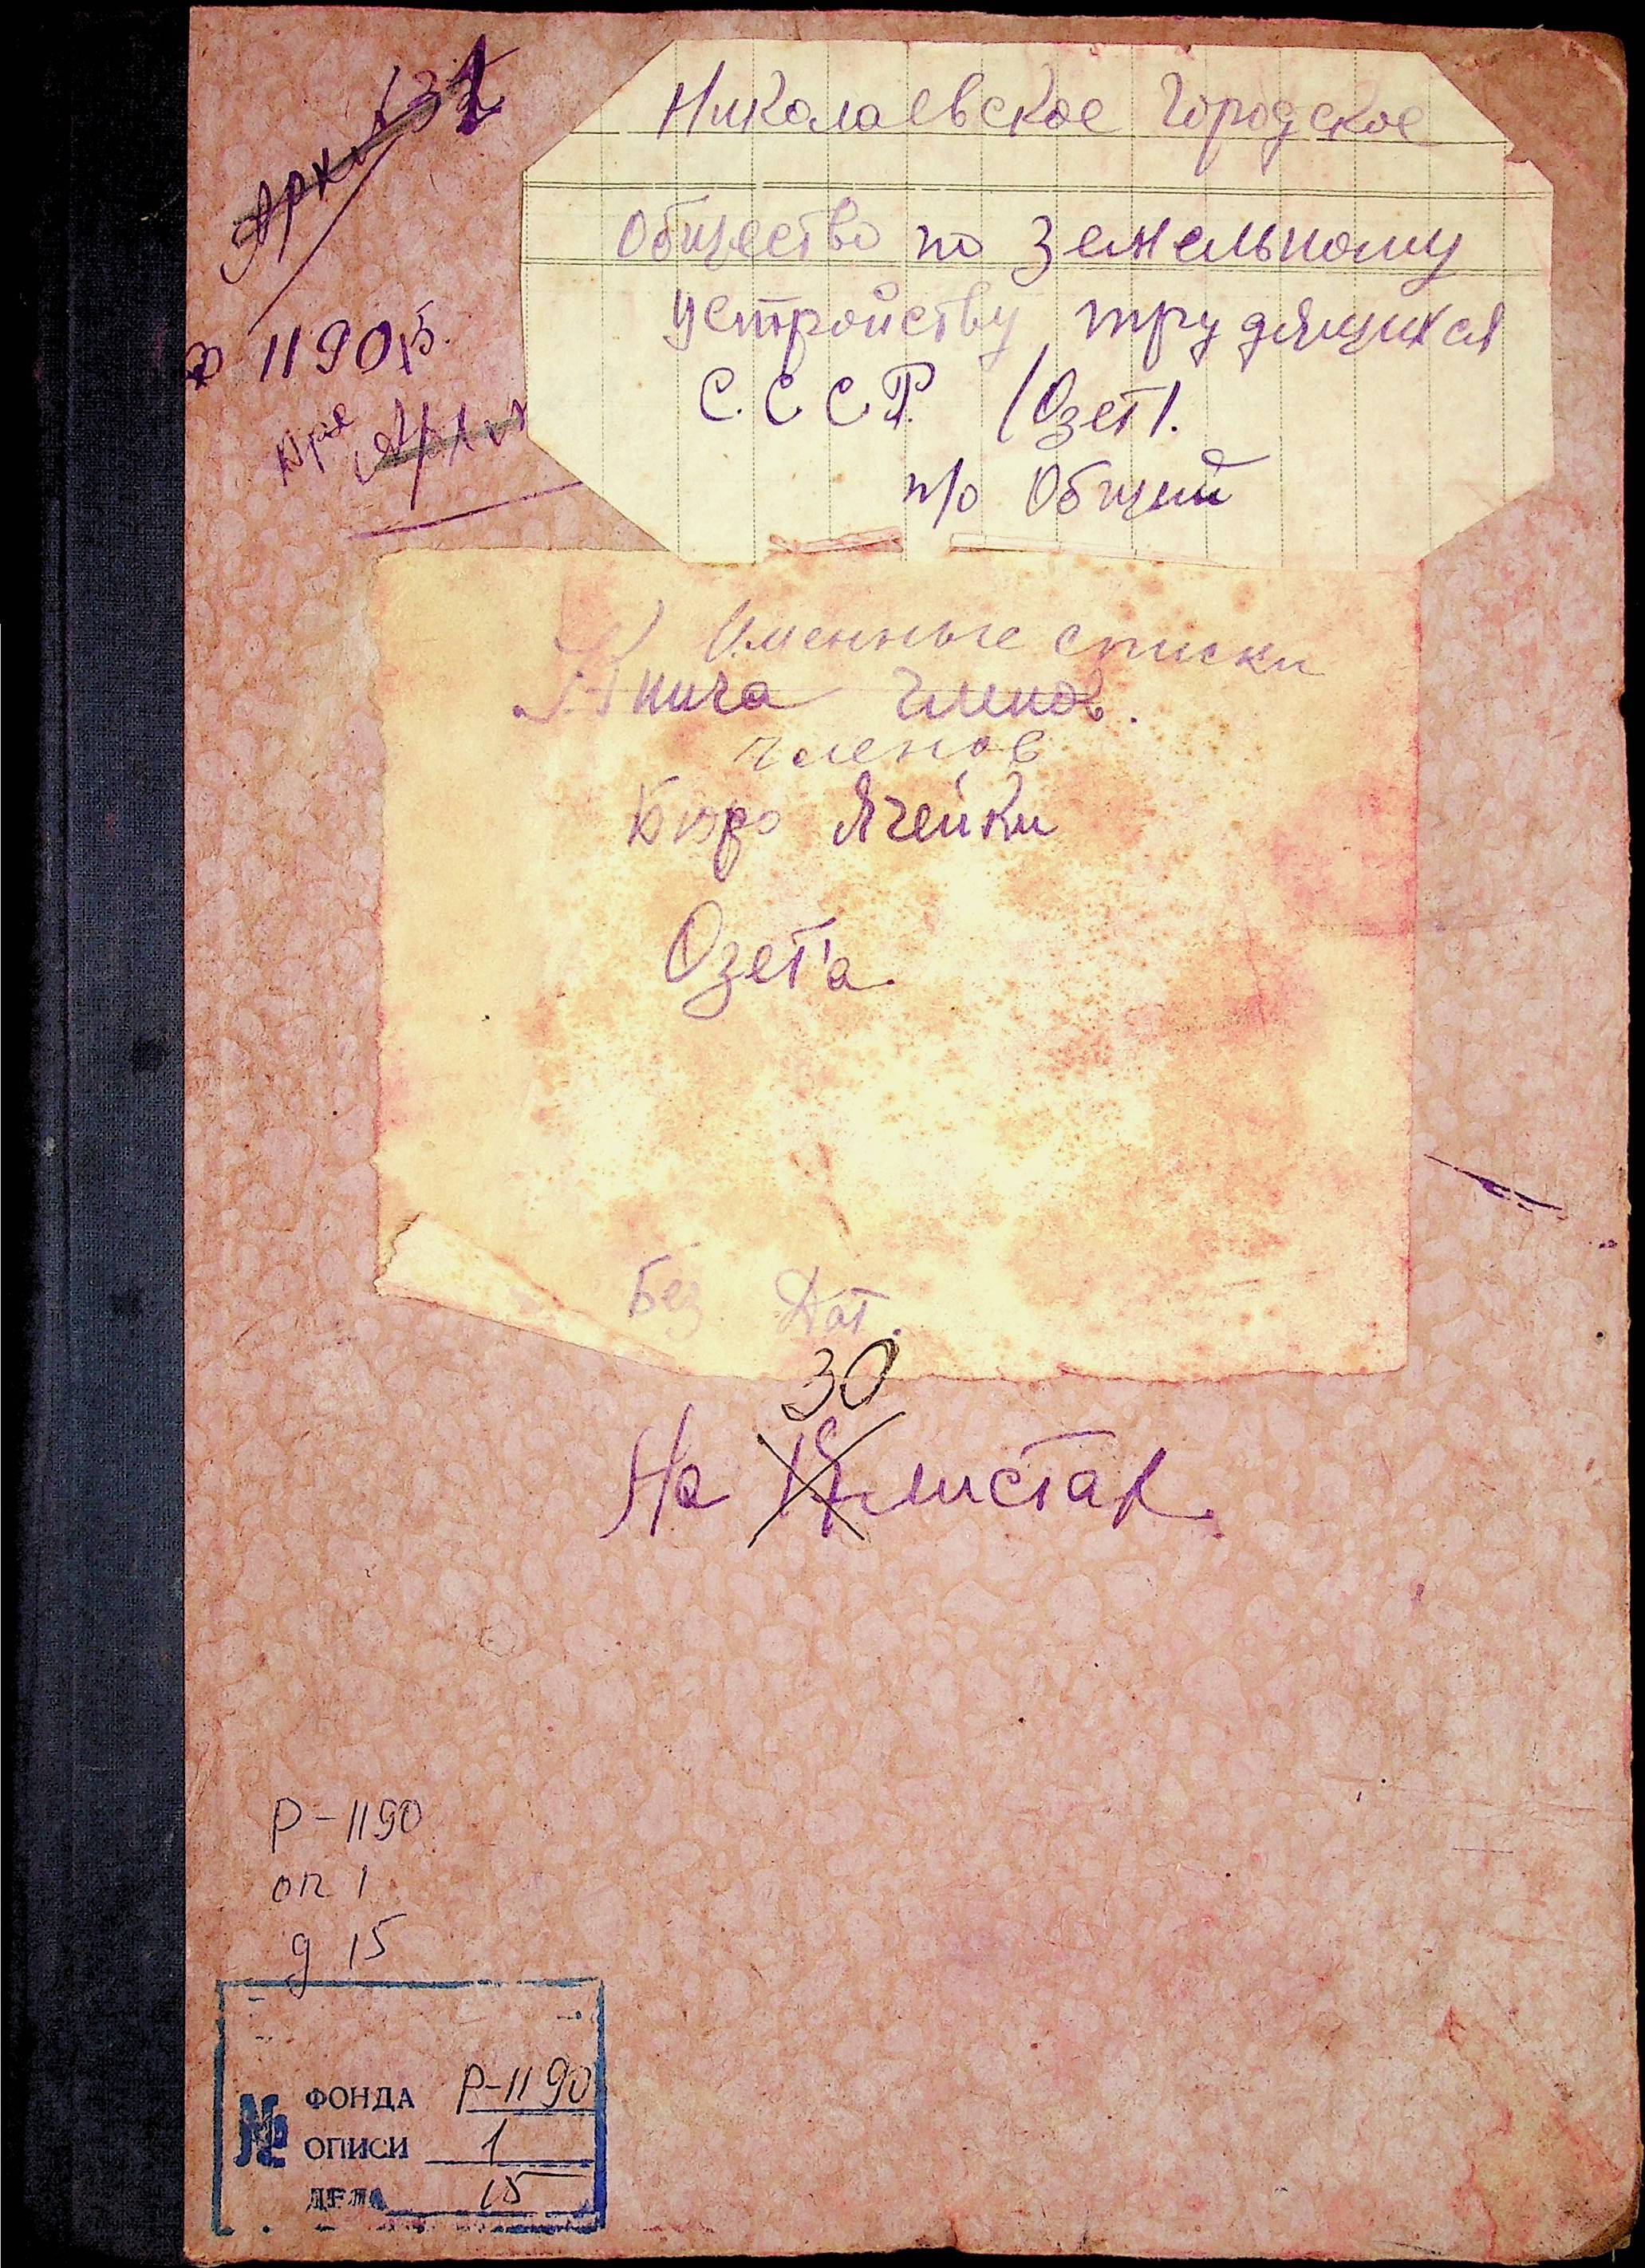 132
Николаевское городское
Общество по земельному
устройству трудящихся
С.С.С.Р. (Озет).
п/о Общий
1190
Именные списки
Книга членов.
членов
Бюро Ячейки
Озет'а.
Без Дат.
30
На листах.
Р-1190
оп 1
д 15
№ ФОНДА Р-1190
ОПИСИ 1
ДЕЛА 15